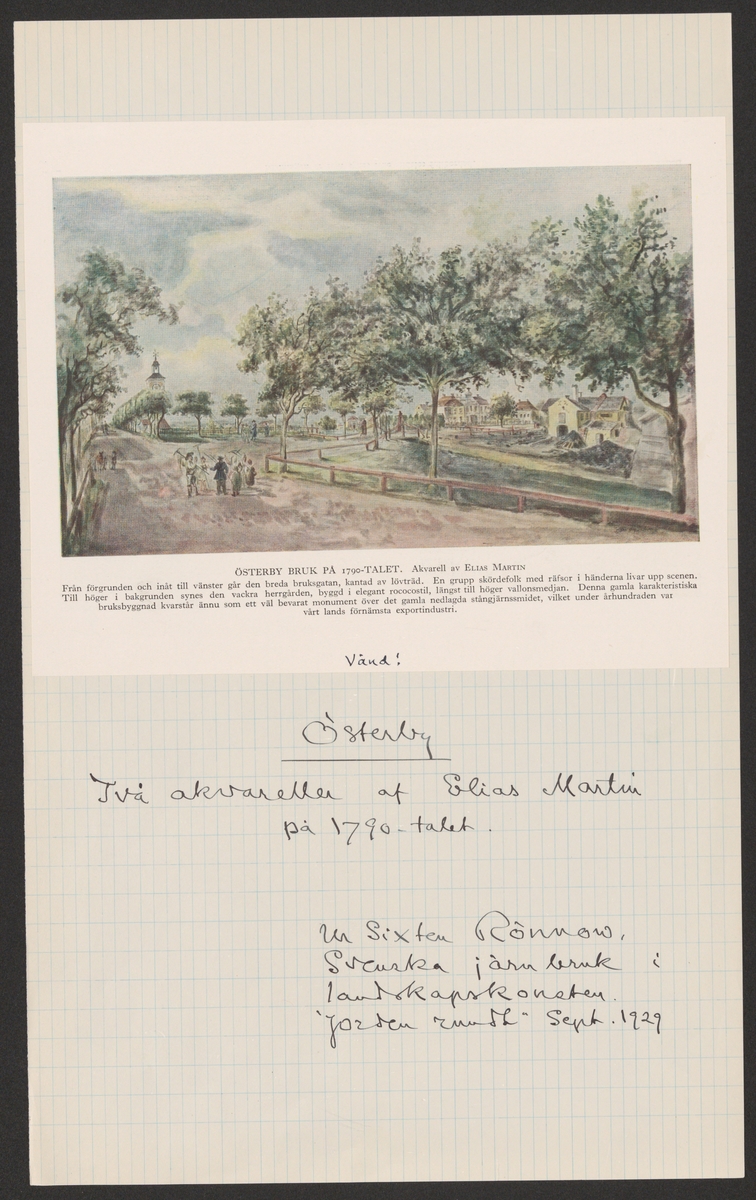 ÖSTERBY BRUK PÅ 1790-TALET. Akvarell av ELIAS MARTIN
Från förgrunden och inåt till vänster går den breda bruksgatan, kantad av lövträd. En grupp skördefolk med räfsor i händerna livar upp scenen.
Till höger i bakgrunden synes den vackra herrgården, byggd i elegant rococostil, längst till höger vallonsmedjan. Denna gamla karakteristiska
bruksbyggnad kvarstår ännu som ett väl bevarat monument över det gamla nedlagda stångjärnssmidet, vilket under århundraden var
vårt lands förnämsta exportindustri.
Vänd!
Österby
Två akvareller af Elias Martin
på 1790-talet.
Ur Sixten Rönnow,
Svenska järnbruk i
landskapskonsten.
"Jorden rundt" Sept. 1929